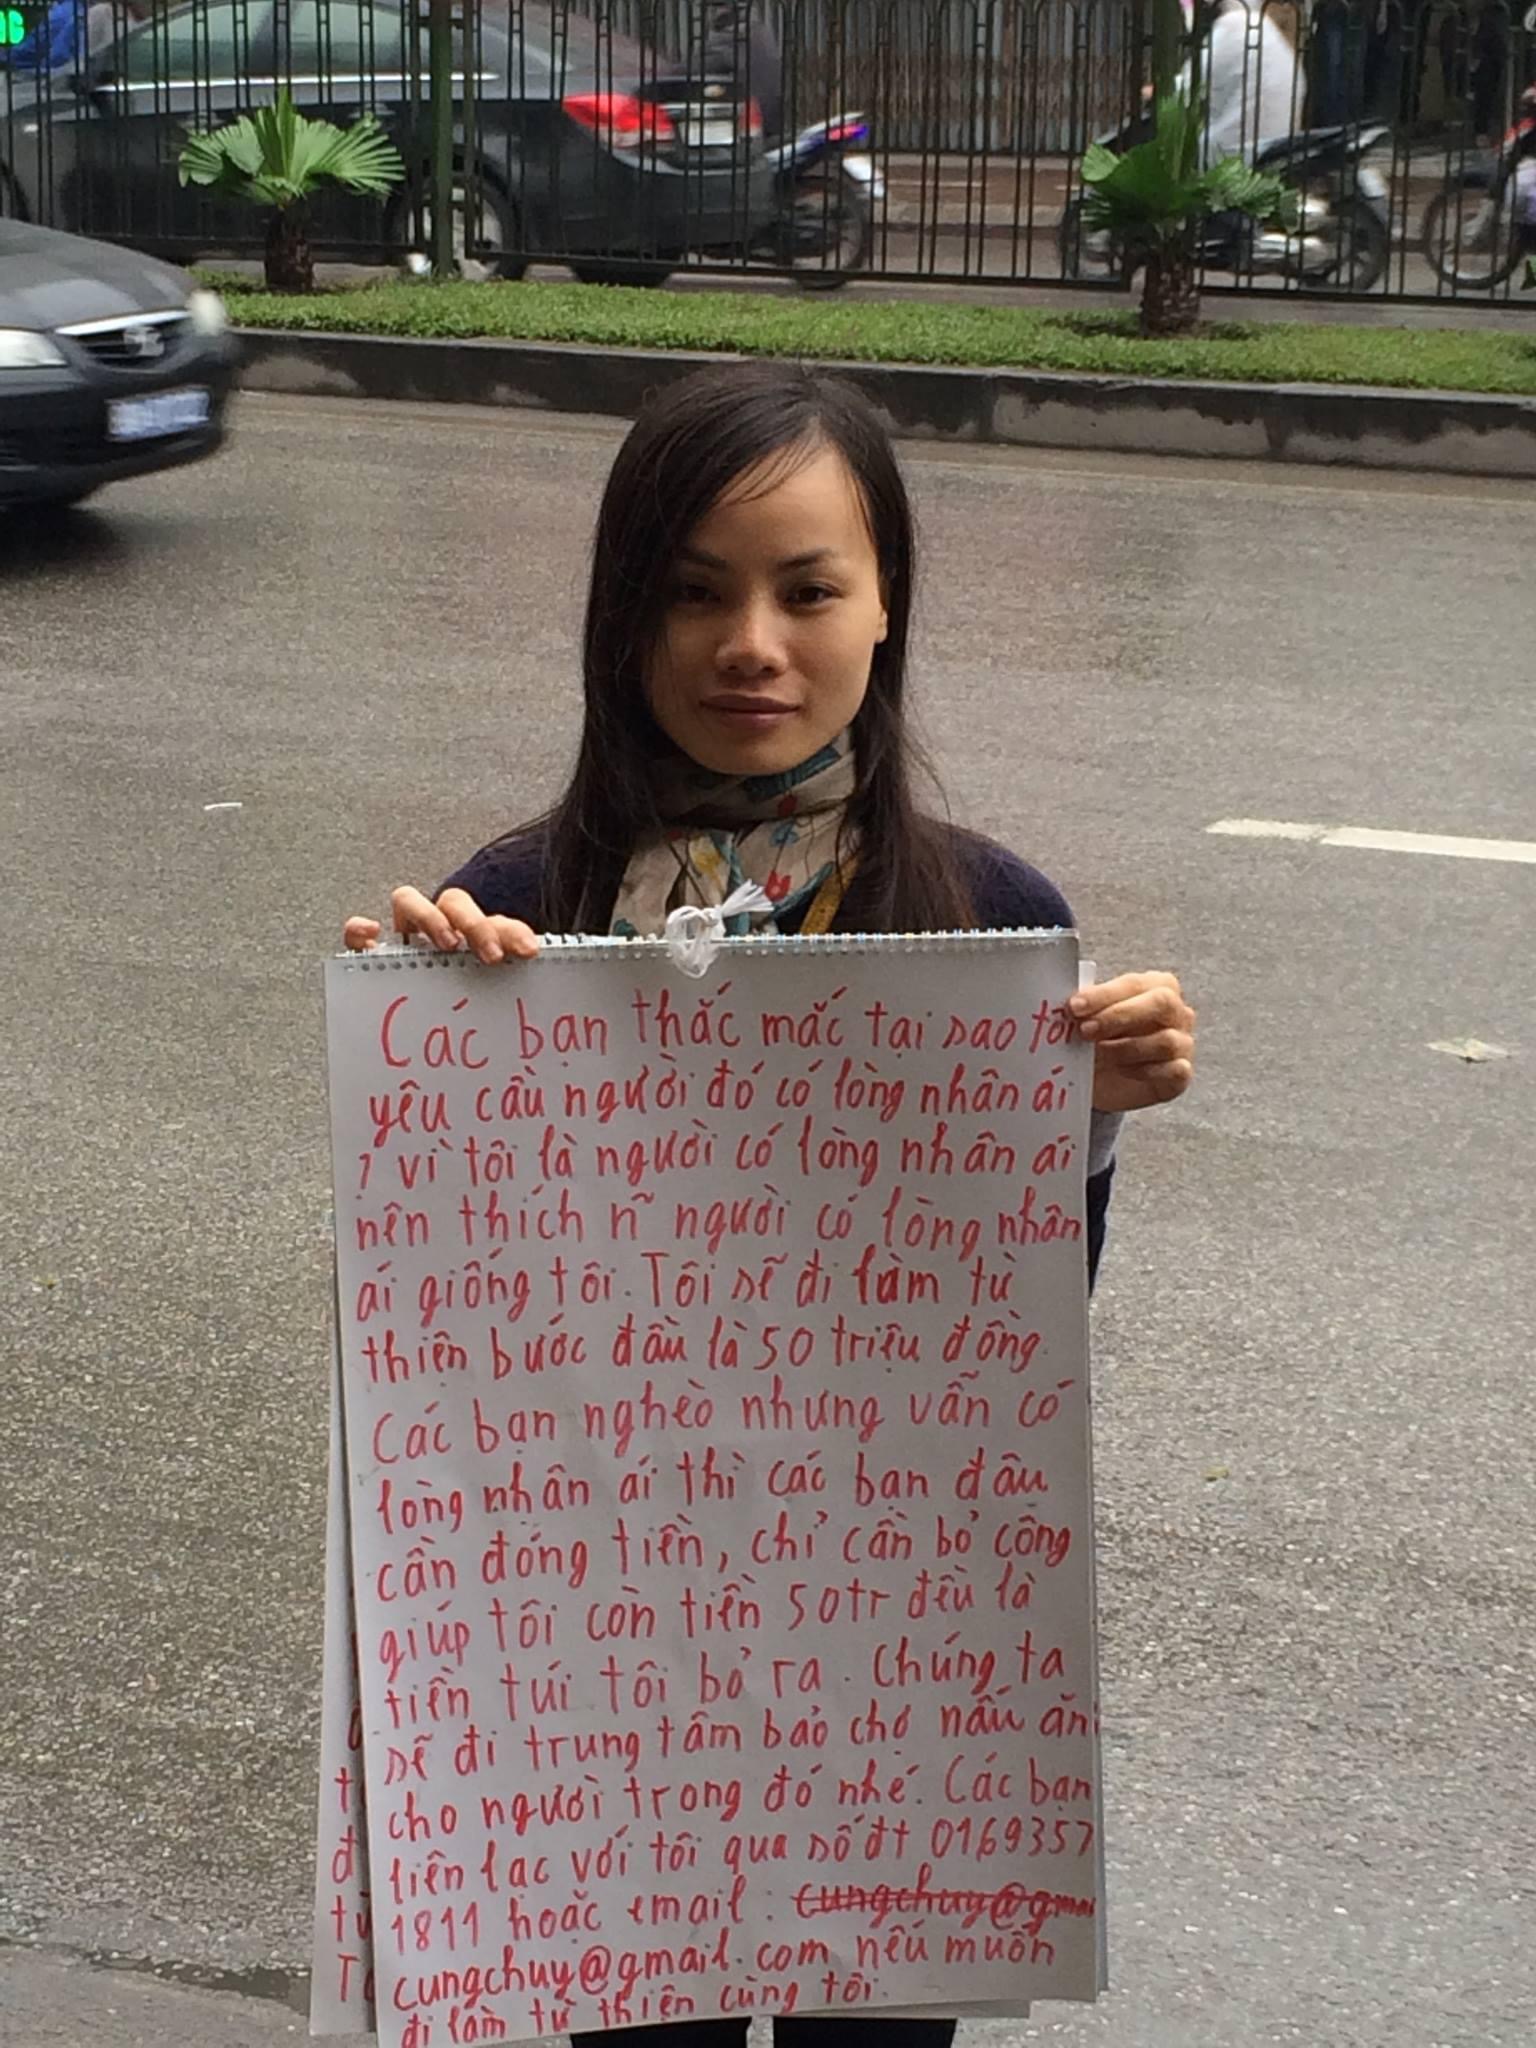 Các bạn thắc mắc tại sao tôi
yêu cầu người đó có lòng nhân ái
? vì tôi là người có lòng nhân ái
nên thích n~ người có lòng nhân
ái giống tôi. Tôi sẽ đi làm từ
thiện bước đầu là 50 triệu đồng.
Các bạn nghèo nhưng vẫn có
lòng nhân ái thì các bạn đâu
cần đóng tiền, chỉ cần bỏ công
giúp tôi còn tiền 50tr đều là
tiền túi tôi bỏ ra. Chúng ta
sẽ đi trung tâm bảo chợ nấu ăn
cho người trong đó nhé. Các bạn
liên lạc với tôi qua số đt 0169357
1811 hoặc email: cungchuy@gmai
cungchuy@gmail.com nếu muốn
đi làm từ thiện cùng tôi.